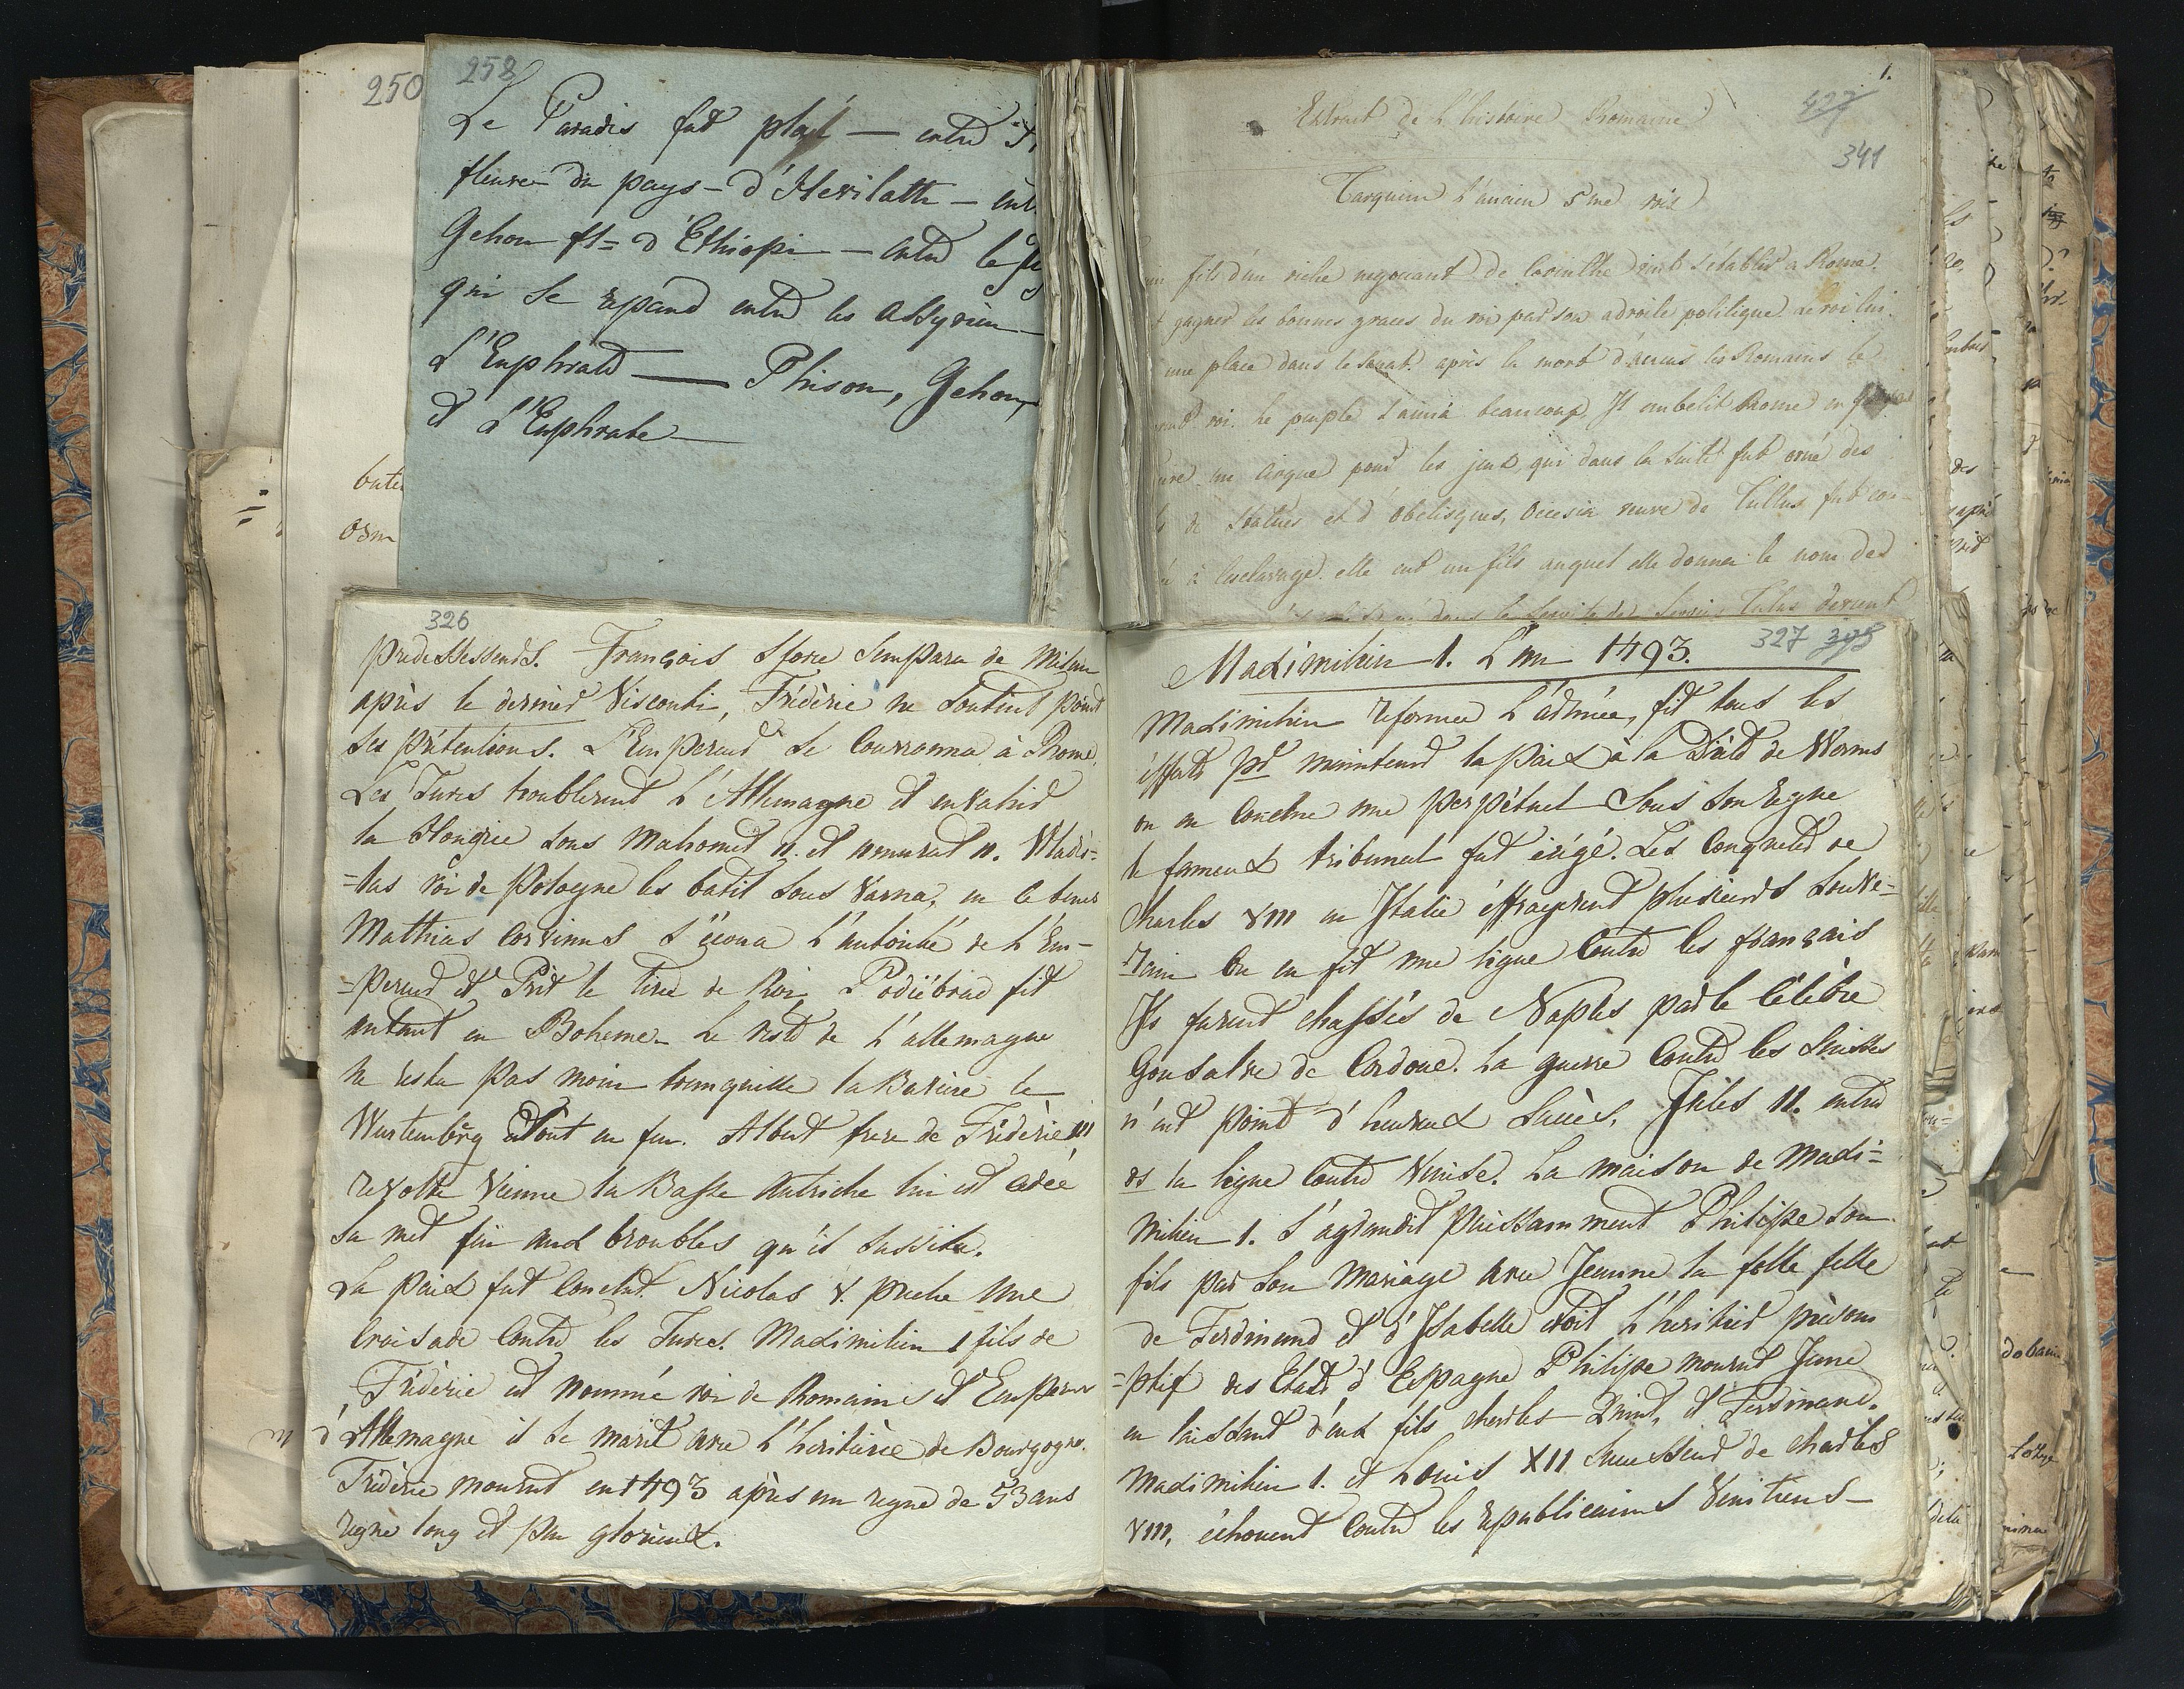 250
258
Le Paradis fut placé — entre
fleuve du pays - d'Hevilath —
Gehon fl= d'Ethiopi — entre le
qui se repand entre les Assyrien —
L'Euphrate — Phison, Gehon,
et L'Euphrate —
1.
Extrait de L'histoire Romaine
427
341
Tarquin L'ancien 5me roi
fils d'un riche negociant de Corinthe vint s'établir a Rome.
gagner les bonnes graces du roi par son adroite politique. Le roi lui
une place dans le Senat. après la mort d'Ancus les Romains le
roi. Le peuple l'aima beaucoup, Il embelit Rome en
un Cirque pour les jeux, qui dans la suite fut orné des
de Statues et d'obelisques, Ocresia veuve de Tullus fut con-
à l'esclavage. elle eut un fils auquel elle donna le nom de
326
predessesseurs. François Sforce s'empara de Milan
après le dernier Visconti, Frédéric ne soutint point
ses prétentions. L'Empereur se Couronna à Rome.
Les Turcs troublerent L'Allemagne et envahir
la Hongrie sous Mahomet II. et Amurat II. Wladis-
=las roi de Pologne les batit sous Varna, en ce tems
Mathias Corvinus secoua l'autorité de L'Em-
=pereur et Prit le titre de Roi, Podiébrad fit
autant en Boheme. Le reste de L'allemagne
ne resta pas moin tranquille la Baviere le
Wurtemberg étoit en feu. Albert frere de Fridéric III
revolte Vienne la Basse Autriche lui est cédée
sa met fin aux troubles qu'il suscita.
La paix fut Conclut. Nicolas V. preche une
Croisade Contre les Turcs. Maximilien I fils de
Fridéric est nommé roi de Romains et Empereur
d'Allemagne il se marit avec L'heritière de Bourgogne.
Fridéric mourut en 1493 après un regne de 53 ans
regne long et peu glorieux.
327 398
Maximilien 1. L'an 1493.
Maximilien reforma L'armée, fit tous les
éfforts pr maintenir la paix à la Diète de Worms
on en Conclue une perpétuel Sous son regne
le fameux tribunal fut érigé. Les Conquetes de
Charles VIII en Italie éffrayerent plusieurs Souve-
=rain On en fit une ligue Contre les français
Ils furent chassés de Naples par le Célèbre
Gonsalve de Cordoue. La guerre Contre les Suisses
n'eut point d'heureux Succès, Jules II. entre
ds la ligue Contre Venise. La maison de Maxi=
milien 1. s'agrandit puissamment Philippe son
fils par son mariage avec Jeanne la folle fille
de Ferdinand et d'Isabelle étoit L'heritier présom
=ptif des Etats d'Espagne Philippe mourut Jeune
en laissant deux fils Charles Quint, et Ferdinand.
Maximilien 1. et Louis XII Successeur de Charles
VIII, échouent Contre les republicains Venitiens-